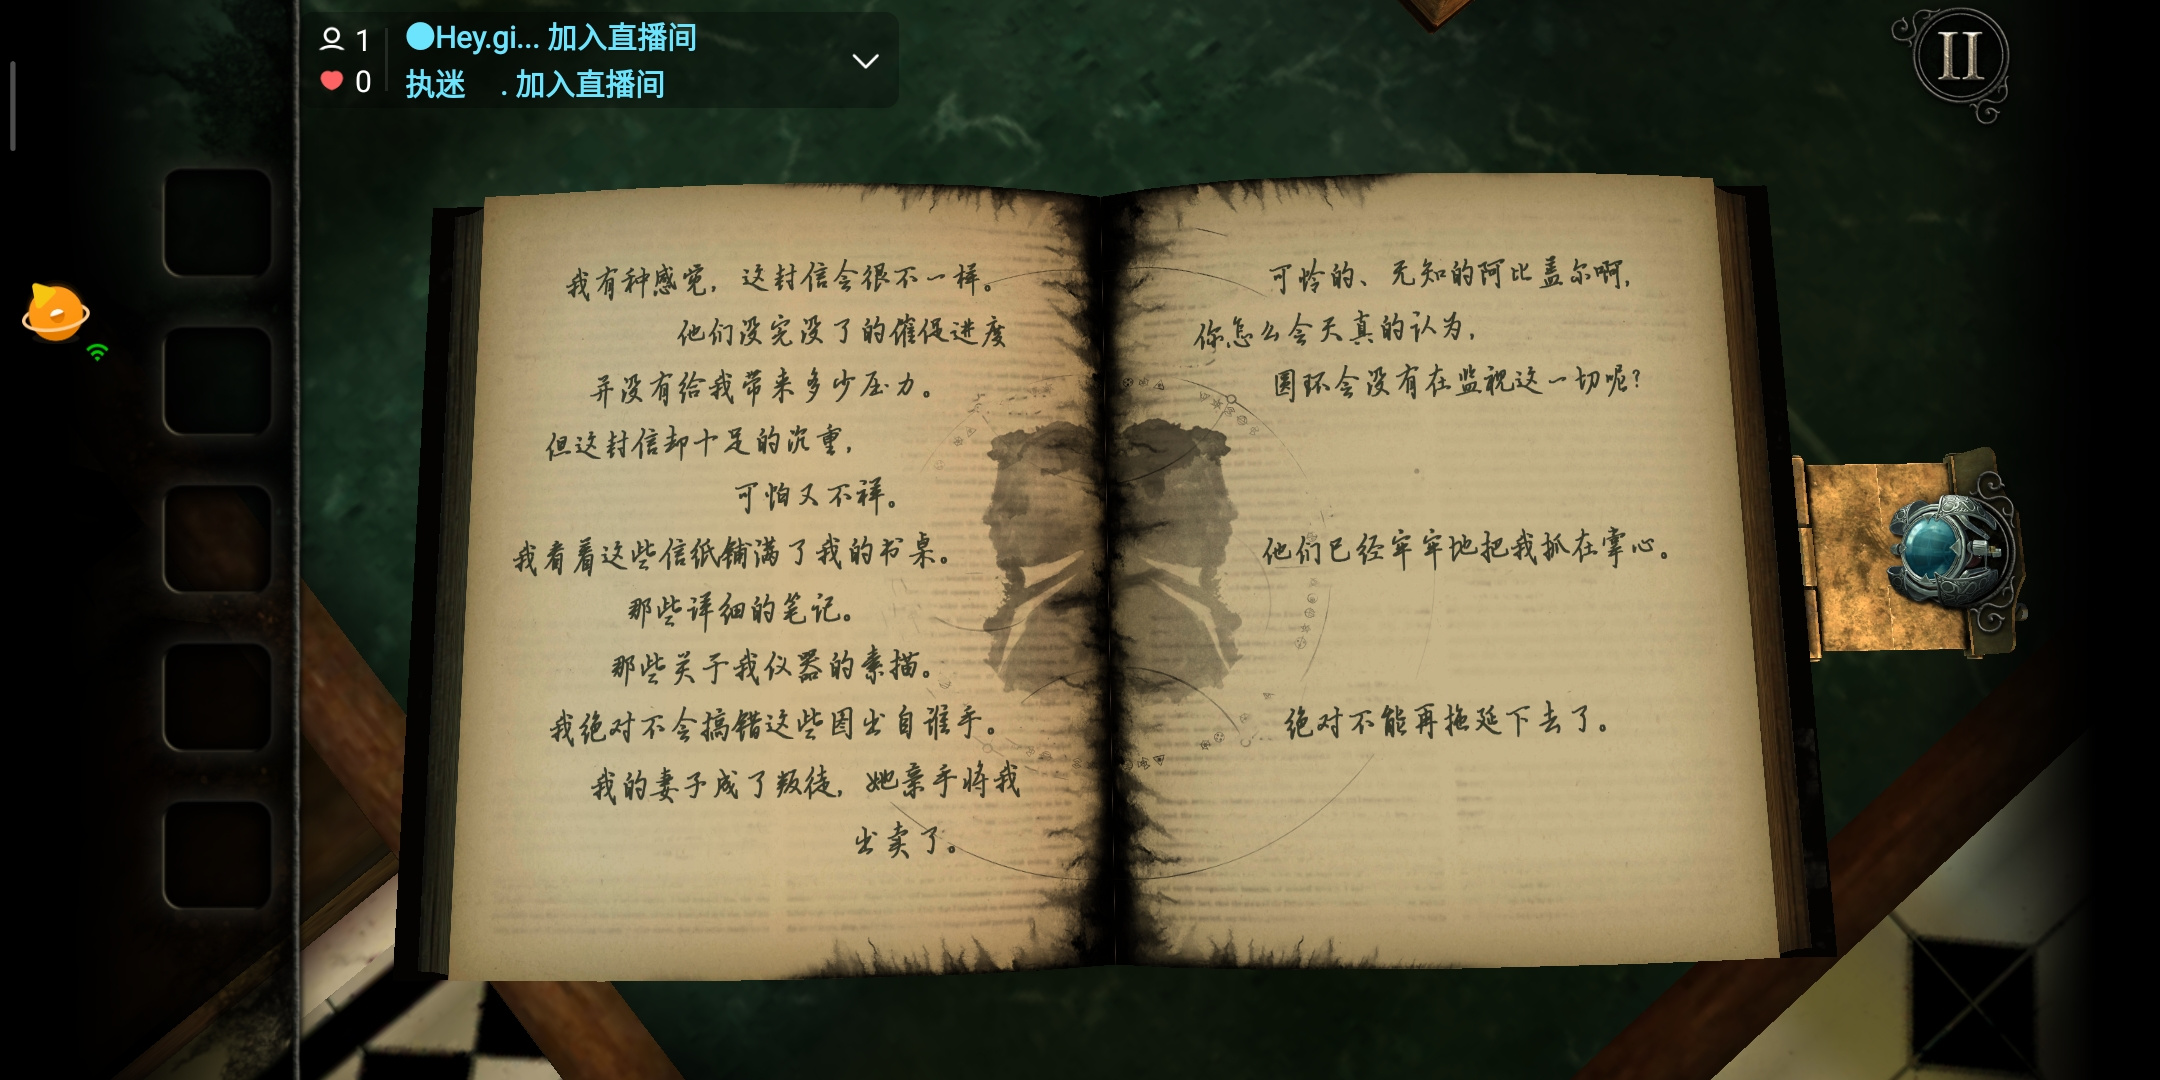 1
0
Hey.gi... 加入直播间
执迷 . 加入直播间
II
我有种感觉，这封信会很不一样。
他们没完没了的催促进度
并没有给我带来多少压力。
但这封信却十足的沉重，
可怕又不祥。
我看着这些信纸铺满了我的书桌。
那些详细的笔记。
那些关于我仪器的素描。
我绝对不会搞错这些图出自谁手。
我的妻子成了叛徒，她亲手将我
出卖了。
可怜的、无知的阿比盖尔啊，
你怎么会天真的认为，
圆环会没有在监视这一切呢？
他们已经牢牢地把我抓在掌心。
绝对不能再拖延下去了。